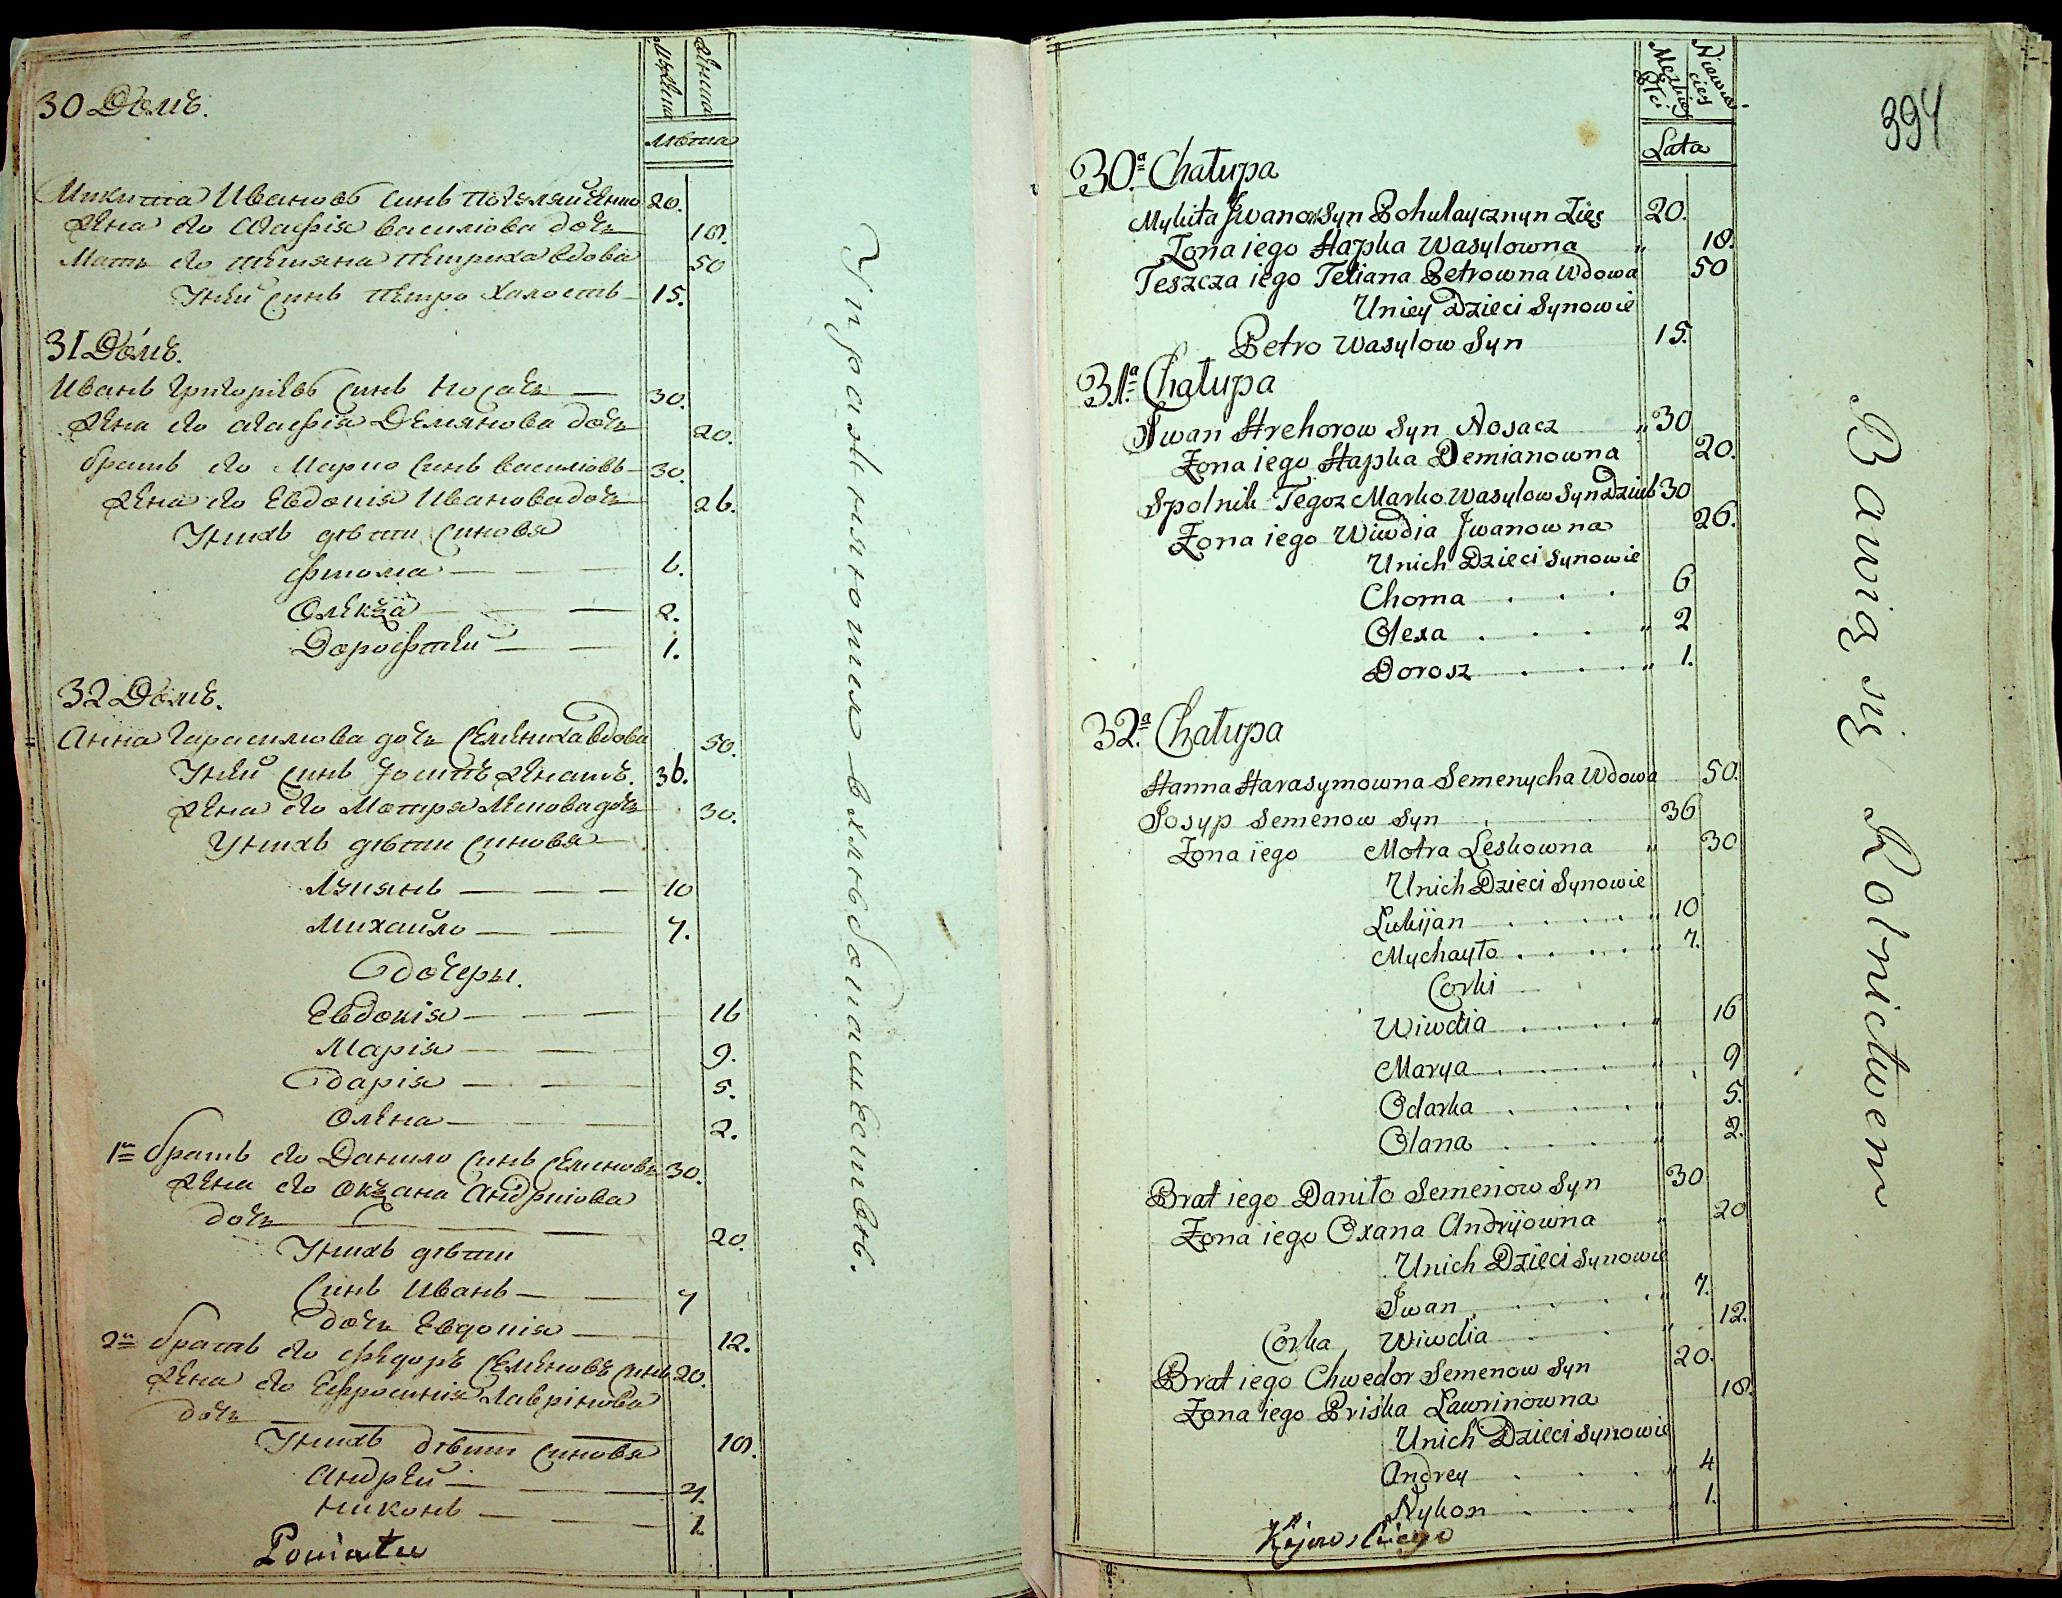 Мужеска
Женска
Лѣта
30 Домъ.
Микита Ивановъ синъ 20.
Жена его Агафія василіова дочь 18.
Мать его тетяна петриха вдова 50
Уней синъ петро холостъ 15.
31 Домъ.
Иванъ Григоріевъ синъ Носачь 30.
Жена его агафія Демянова дочь 20.
братъ его Марко синъ василювъ 30.
Жена его Евдокія Иванова дочь 26.
Унихъ дѣти синовя
фтома 6.
Олекза 2.
Дорофтей 1.
32 Домъ.
Анна Гарасимова дочь Семениха вдова 50.
Уней синъ Іосипъ женатъ. 36.
Жена его Мотря Лескова дочь 30.
Унихъ дѣти синовя
Лукянъ 10
Михайло 7.
дочеры.
Евдокія 16
Марія 9.
дарія 5.
Олена 2.
1й братъ его Данило синъ Семеновъ 30.
Жена его Окзана Андріюва
дочь 20.
Унихъ дѣти
Синъ Иванъ 7
дочь Евдокія 12.
2й братъ его федоръ Семеновъ синъ 20.
Жена его Ефросинія Лаврінова
дочь
Унихъ дѣти синовя 18.
Андрей 4.
Никонъ 1.
Poviatu
Упражняютшя вхлѣбопашествѣ.
394
Męzkiey Płci
Niewieściey
Lata
30.ª Chałupa
Mykita Jwanow Syn Pohulaycznyn Zięć 20.
Żona iego Hapka Wasylowna „ 18.
Teszcza iego Tetiana Petrowna Wdowa 50
Uniey Dzieci Synowie
Petro Wasylow Syn 15.
31.ª Chałupa
Jwan Hrehorow Syn Nosacz „ 30
Żona iego Hapka Demianowna 20.
Spolnik Tegoz Marko Wasylow Syn Dziub 30
Żona iego Wiwdia Jwanowna 26.
Unich Dzieci Synowie
Choma . . . 6
Olexa . . . „ 2
Dorosz . . . „ 1.
32.ª Chałupa
Hanna Harasymowna Semenycha Wdowa 50.
Josyp Semenow Syn 36
Żona iego Motra Leskowna „ 30
Unich Dzieci Synowie
Lukijan . . . . „ 10
Mychayło . . . . „ 7.
Corki
Wiwdia . . . . „ 16
Marya . . . . „ 9
Odarka . . . . „ 5.
Olana . . . . „ 2.
Brat iego Daniło Semenow Syn 30
Żona iego Oxana Andryiowna „ 20
Unich Dzieci Synowie
Jwan . . . „ 7.
Corka Wiwdia . . . „ 12.
Brat iego Chwedor Semenow Syn 20.
Żona iego Priśka Ławrinowna 18.
Unich Dzieci Synowie
Andrey . . . „ 4
Nykon . . . „ 1.
Kijowskiego
Bawią się Rolnictwem